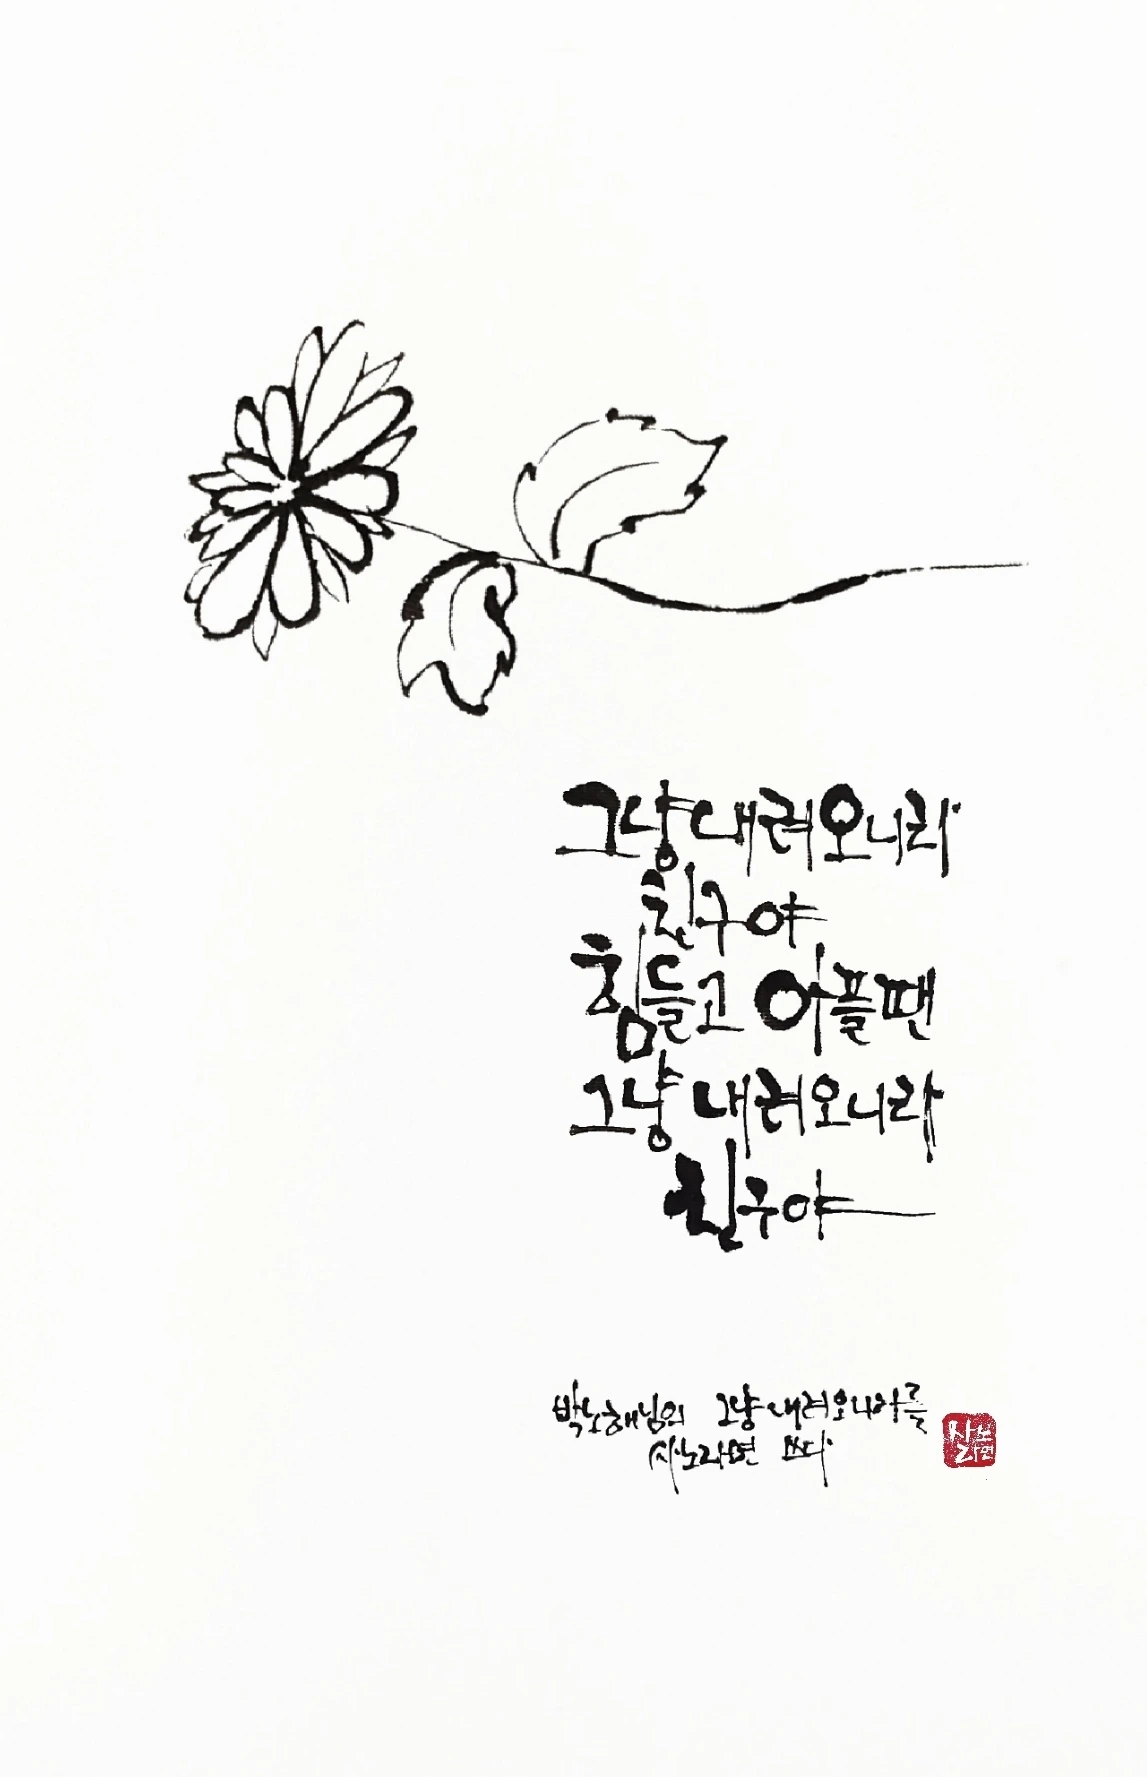 그냥 내려오니라
친구야
힘들고 아플땐
그냥 내려오니라
친구야
박노해님의 그냥 내려오니라를
사노라면 쓰다